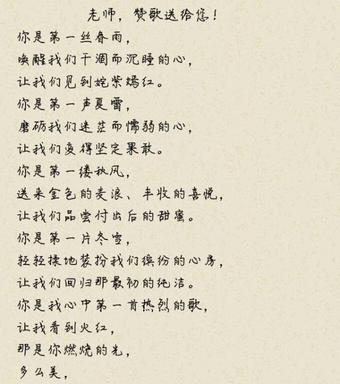 老师，赞歌送给您！
你是第一丝春雨，
唤醒我们干涸而沉睡的心，
让我们见到姹紫嫣红。
你是第一声夏雷，
磨砺我们迷茫而懦弱的心，
让我们变得坚定果敢。
你是第一缕秋风，
送来金色的麦浪、丰收的喜悦，
让我们品尝付出后的甜蜜。
你是第一片冬雪，
轻轻揉地装扮我们缤纷的心房，
让我们回归那最初的纯洁。
你是我心中第一首热烈的歌，
让我看到火红，
那是你燃烧的光，
多么美，